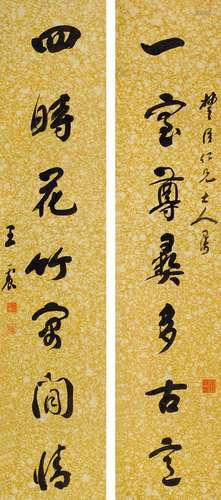 一室尊彝多古意
四時花竹寄閒情
仁兄大人
王震